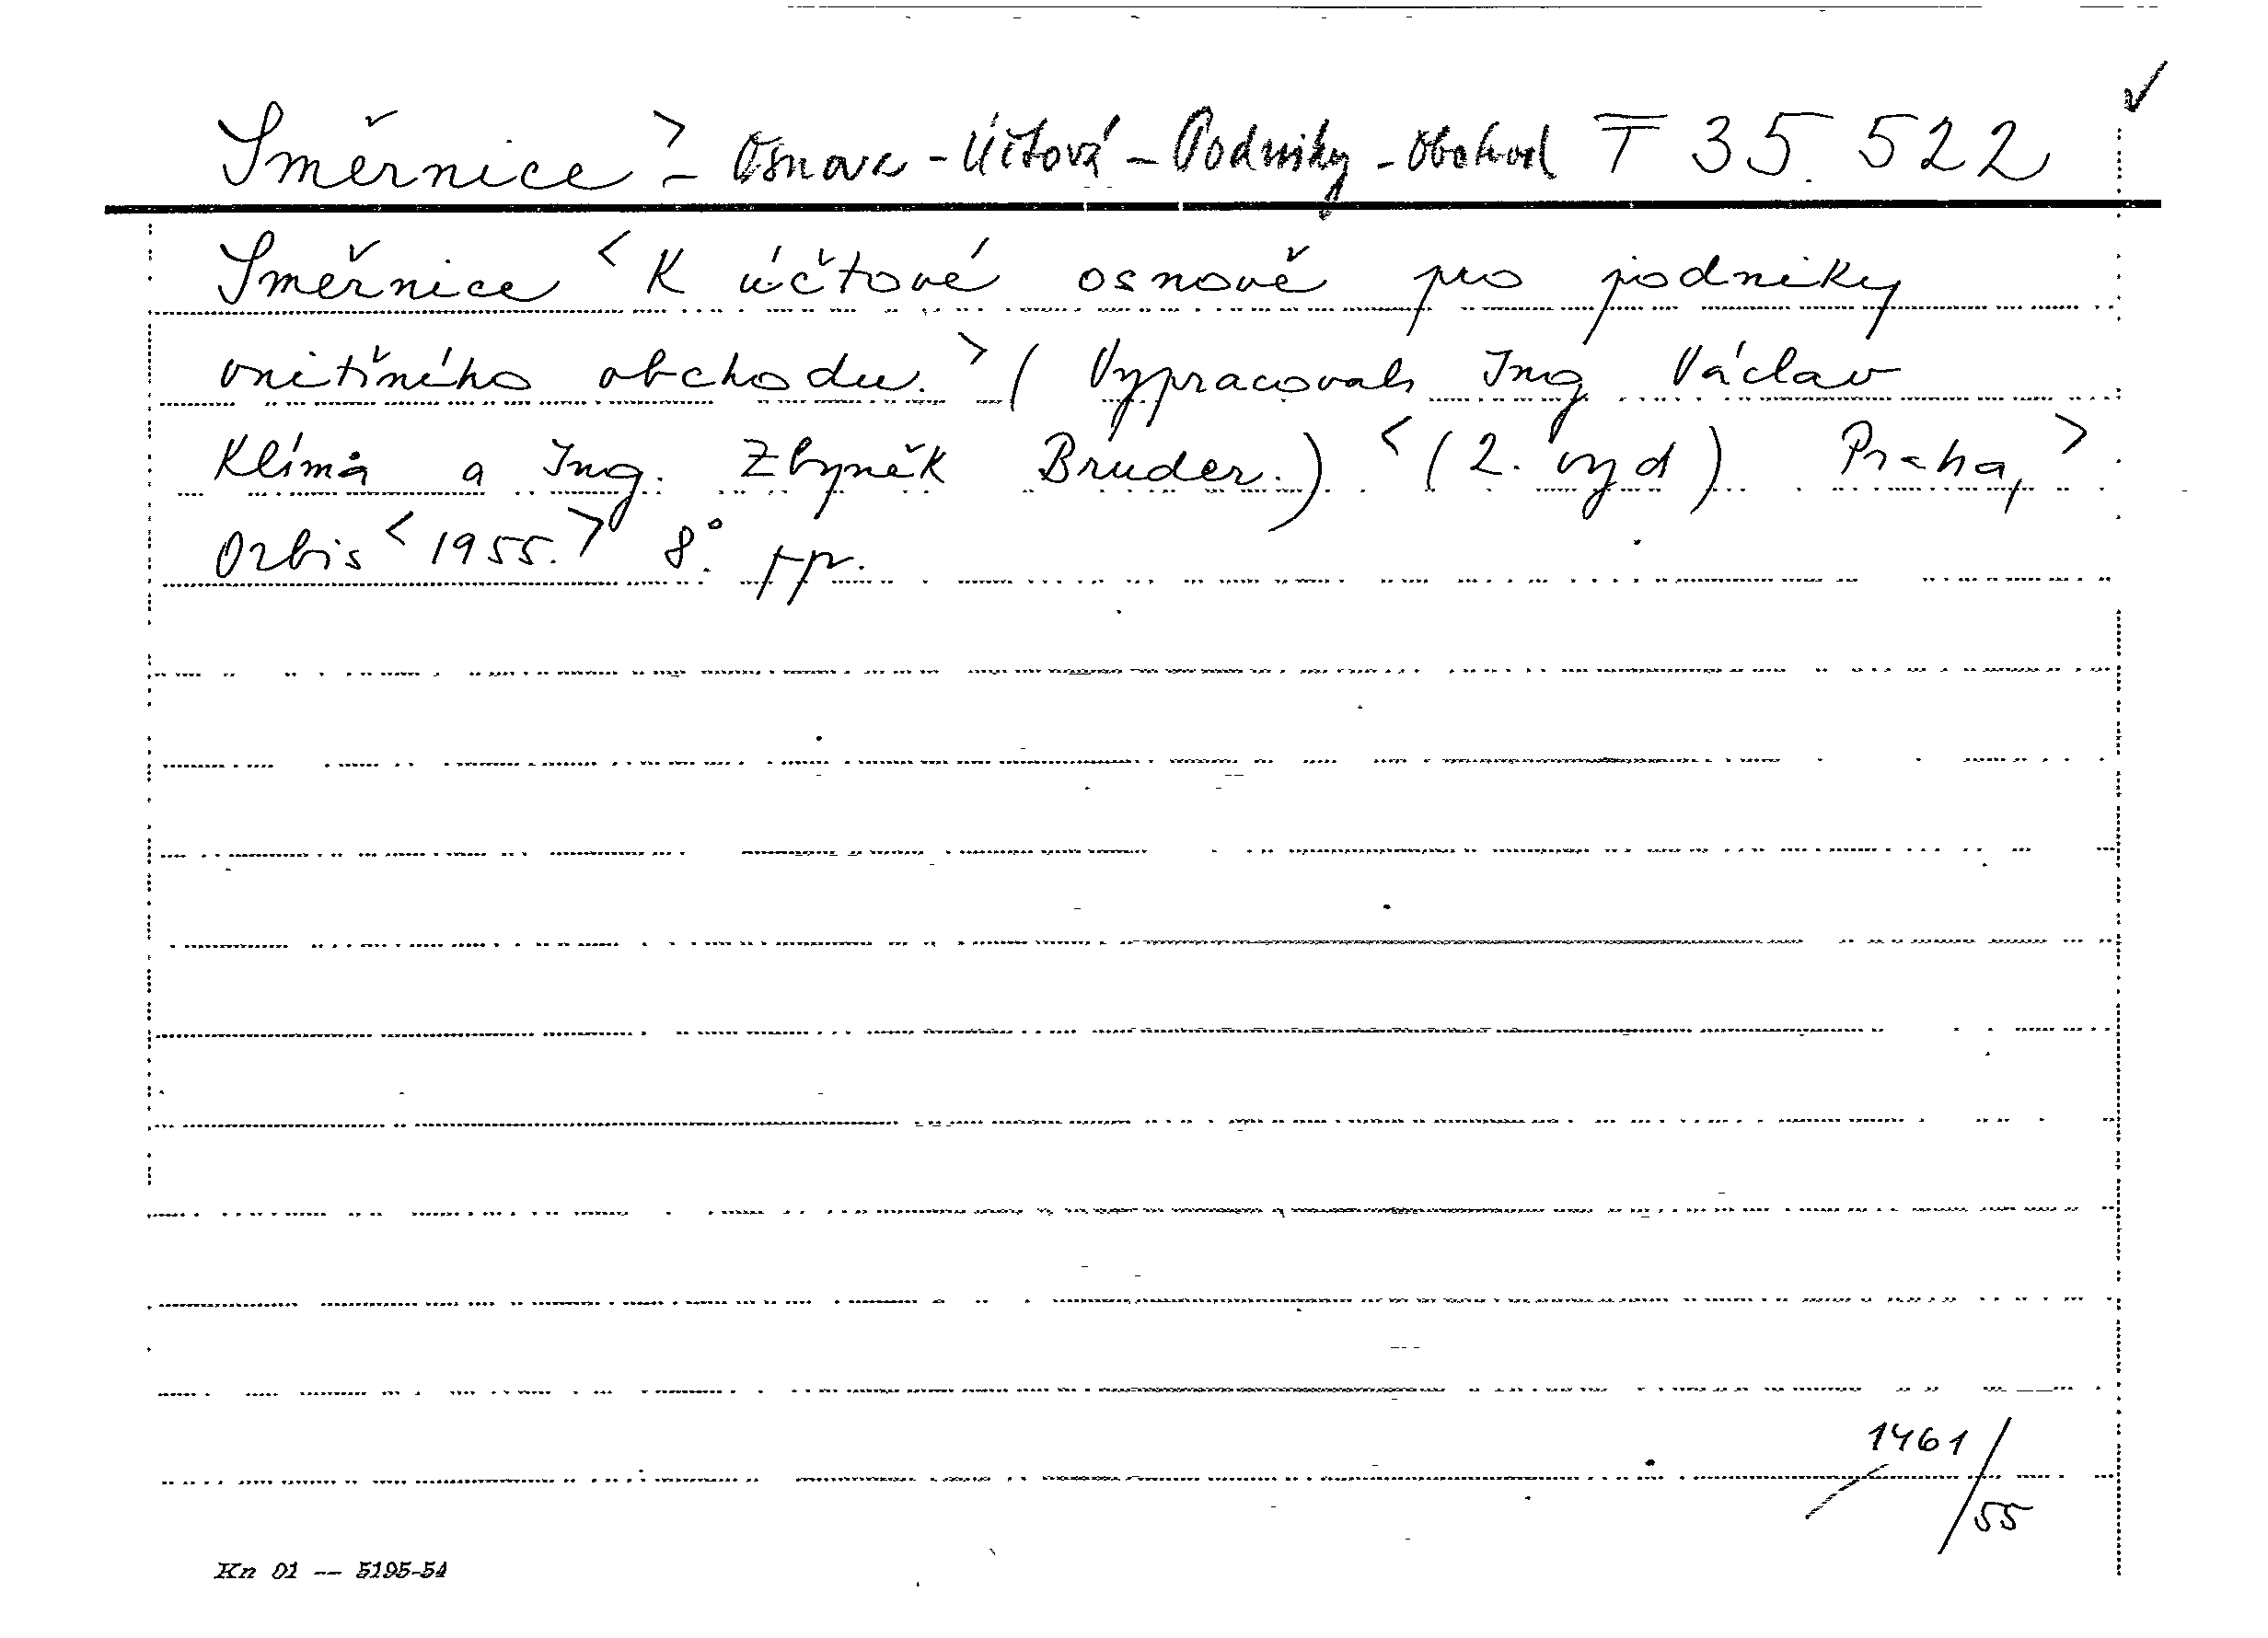 Směrnice > - Osnova - Účtová - Podniky - Obchod T 35.522
Směrnice < K účtové osnově pro podniky
vnitřního obchodu. > ( Vypracovali Ing Václav
Klíma a Ing. Zbyněk Bruder.) < (2. vyd) Praha, >
Orbis < 1955. > 8°.
1461/55
Kn 01 -- 5195-54